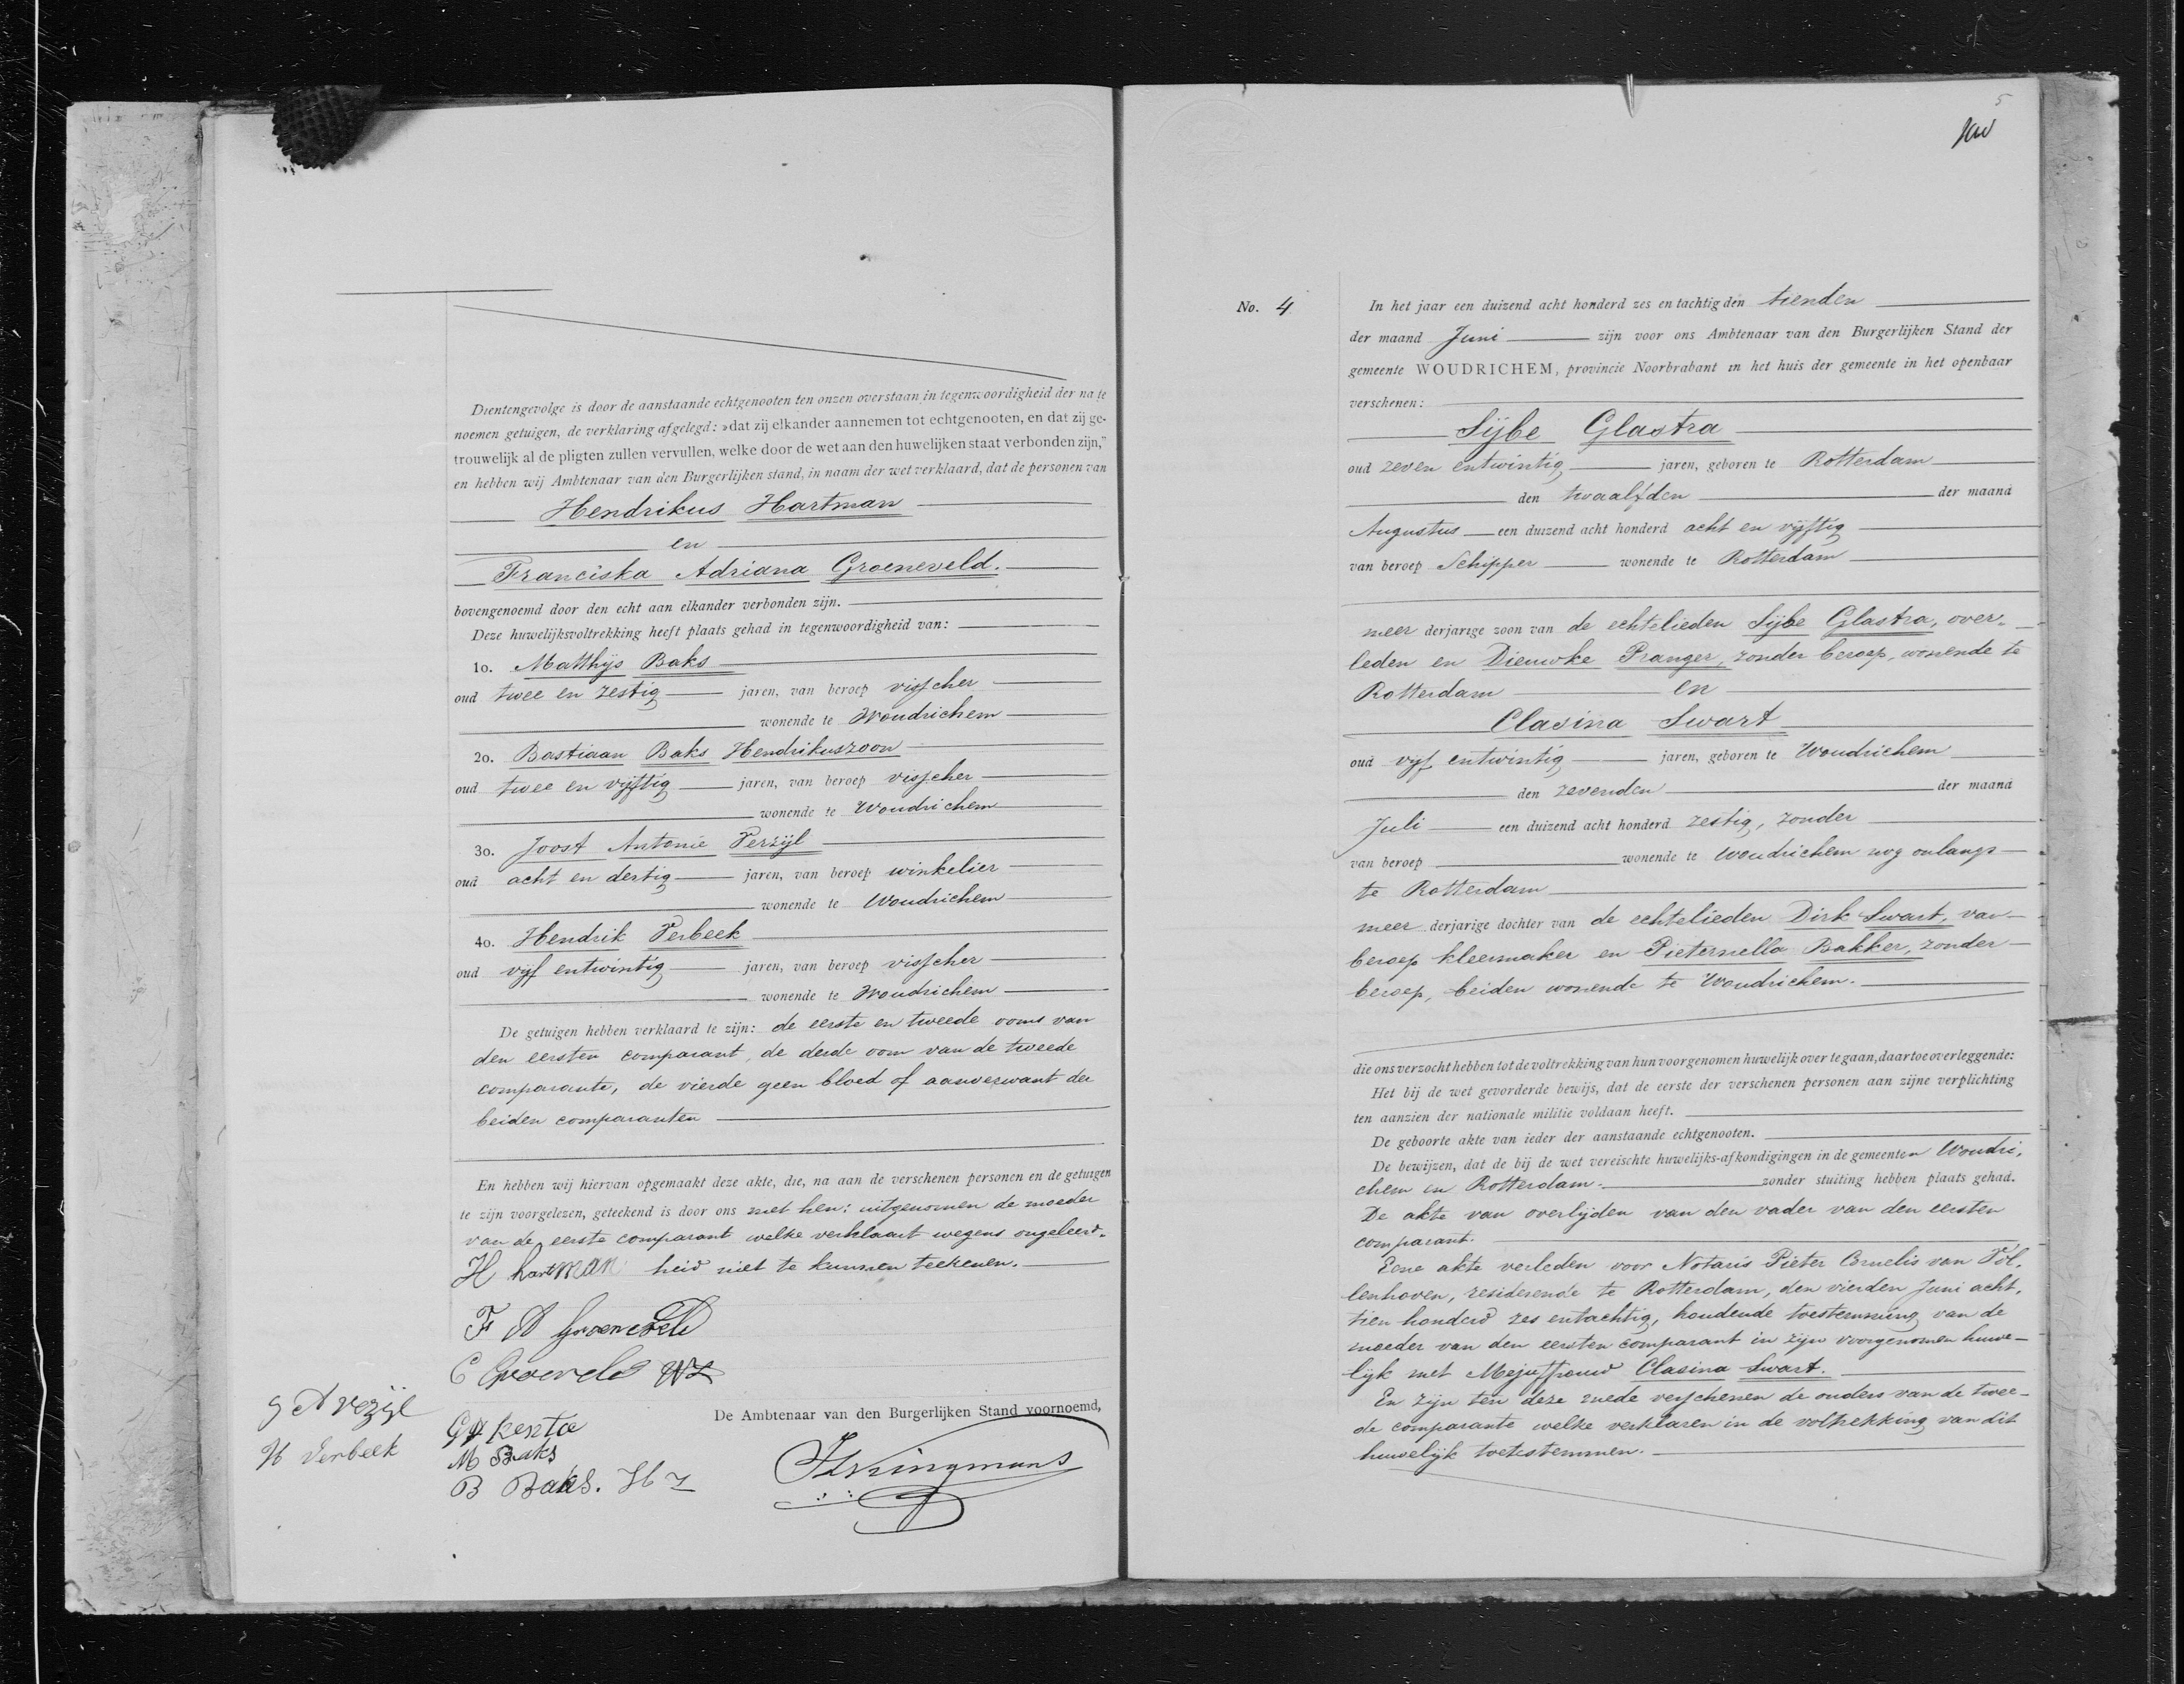 Dientengevolge is door de aanstaande echtgenooten ten onzen overstaan in tegenwoordigheid der na te
noemen getuigen, de verklaring afgelegd: »dat zij elkander aannemen tot echtgenooten, en dat zij ge-
trouwelijk al de pligten zullen vervullen, welke door de wet aan den huwelijken staat verbonden zijn,"
en hebben wij Ambtenaar van den Burgerlijken stand, in naam der wet verklaard, dat de personen van
Hendrikus Hartman
en
Franciska Adriana Groeneveld.
bovengenoemd door den echt aan elkander verbonden zijn.
Deze huwelijksvoltrekking heeft plaats gehad in tegenwoordigheid van:
1o. Matthijs Baks
oud twee en zestig jaren, van beroep visscher
wonende te Woudrichem
2o. Bastiaan Baks Hendrikuszoon
oud twee en vijftig jaren, van beroep visscher
wonende te Woudrichem
3o. Joost Antonie Verzijl
oud acht en dertig jaren, van beroep winkelier
wonende te Woudrichem
4o. Hendrik Verbeek
oud vijf entwintig jaren, van beroep visscher
wonende te Woudrichem
De getuigen hebben verklaard te zijn: de eerste en tweede ooms van
den eersten comparant, de derde oom van de tweede
comparante, de vierde geen bloed of aanverwant der
beiden comparanten
En hebben wij hiervan opgemaakt deze akte, die, na aan de verschenen personen en de getuigen
te zijn voorgelezen, geteekend is door ons met hen: uitgenomen de moeder
van de eerste comparant welke verklaart wegens ongeleerd-
H hartman heid niet te kunnen teekenen.
F A Groeneveld
C Groeneveld
J A Verzijl
H Verbeek
M Baks
B Baks. Hz
De Ambtenaar van den Burgerlijken Stand voornoemd,
5
No. 4
In het jaar een duizend acht honderd zes en tachtig den tienden
der maand Juni zijn voor ons Ambtenaar van den Burgerlijken Stand der
gemeente WOUDRICHEM, provincie Noorbrabant in het huis der gemeente in het openbaar
verschenen:
Sijbe Glastra
oud zeven entwintig jaren, geboren te Rotterdam
den twaalfden der maand
Augustus een duizend acht honderd acht en vijftig
van beroep Schipper wonende te Rotterdam
meer derjarige zoon van de echtelieden Sijbe Glastra, over-
leden en Dieuwke Pranger, zonder beroep, wonende te
Rotterdam en
Clasina Swart
oud vijf entwintig jaren, geboren te Woudrichem
den zevenden der maand
Juli een duizend acht honderd zestig, zonder
van beroep wonende te Woudrichem nog onlangs
te Rotterdam
meer derjarige dochter van de echtelieden Dirk Swart, van
beroep kleermaker en Pieternella Bakker, zonder
beroep, beiden wonende te Woudrichem.
die ons verzocht hebben tot de voltrekking van hun voorgenomen huwelijk over te gaan, daartoe overleggende:
Het bij de wet gevorderde bewijs, dat de eerste der verschenen personen aan zijne verplichting
ten aanzien der nationale militie voldaan heeft.
De geboorte akte van ieder der aanstaande echtgenooten.
De bewijzen, dat de bij de wet vereischte huwelijks-afkondigingen in de gemeenten Woudri-
chem en Rotterdam. zonder stuiting hebben plaats gehad.
De akte van overlijden van den vader van den eersten
comparant.
Eene akte verleden voor Notaris Pieter Cornelis van Vol-
lenhoven, residerende te Rotterdam, den vierden Juni acht-
tien honderd zes entachtig, houdende toestemming van de
moeder van den eersten comparant in zijn voorgenomen huwe-
lijk met Mejuffrouw Clasina Swart.
En zijn ten deze mede verschenen de ouders van de twee-
de comparante welke verklaren in de voltrekking van dit
huwelijk toetestemmen.